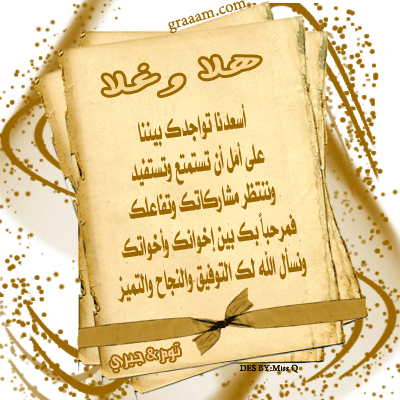 graaam.com
هلا وغلا
أسعدنا تواجدك بيننا
على أمل أن تستمتع وتستفيد
وننتظر مشاركاتك وتفاعلك
فمرحباً بك بين إخوانك وأخواتك
ونسأل الله لك التوفيق والنجاح والتميز
توم & جيري
DES BY:Miss Q